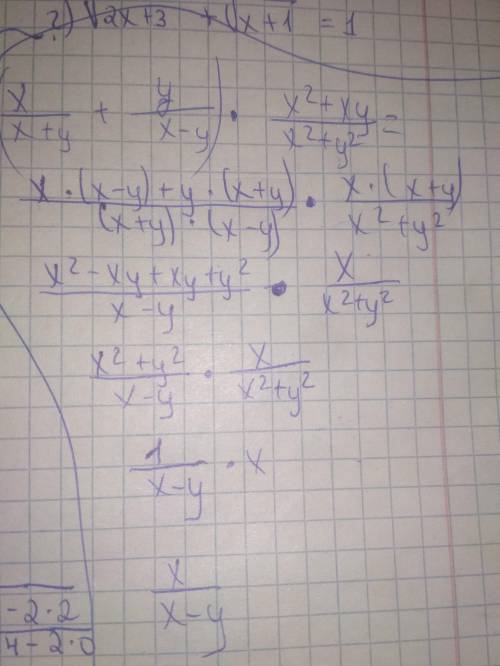 2) √2x+3 + √x+1 = 1
(x/(x+y) + y/(x-y)) · (x²+xy)/(x²+y²) =
(x·(x-y)+y·(x+y))/((x+y)·(x-y)) · (x·(x+y))/(x²+y²)
(x²-xy+xy+y²)/(x-y) · x/(x²+y²)
(x²+y²)/(x-y) · x/(x²+y²)
1/(x-y) · x
x/(x-y)
-2·2
4-2·0